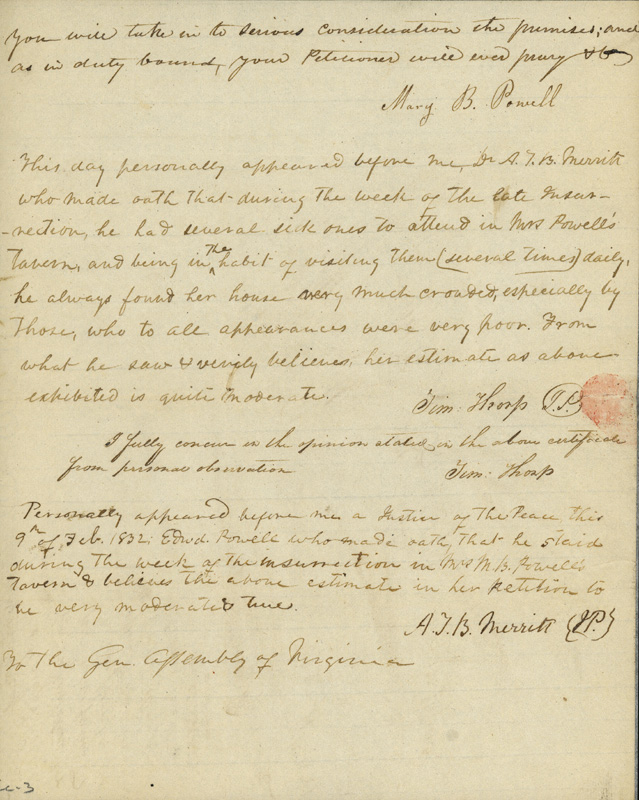 you will take in to serious consideration the premises; and
as in duty bound, your Petitioner will ever pray &c
Mary B. Powell
This day personally appeared before me, Dr A. T. B. Merritt
who made oath that during the week of the late Insur-
-rection, he had several sick ones to attend in Mrs Powell's
Tavern, and being in the habit of visiting them (several times) daily,
he always found her house very much crowded, especially by
those, who to all appearances were very poor. From
what he saw & verily believes, her estimate as above
exhibited is quite moderate.
Tim: Thorp J.P.
I fully concur in the opinion stated in the above certificate
from personal observation Tim: Thorp
Personally appeared before me a Justice of the Peace, this
9th of Feb. 1832; Edwd. Powell who made oath, that he staid
during the week of the insurrection in Mrs M. B. Powell's
Tavern & believes the above estimate in her Petition to
be very moderate & true.
A. T. B. Merritt {J.P.}
To The Gen. Assembly of Virginia